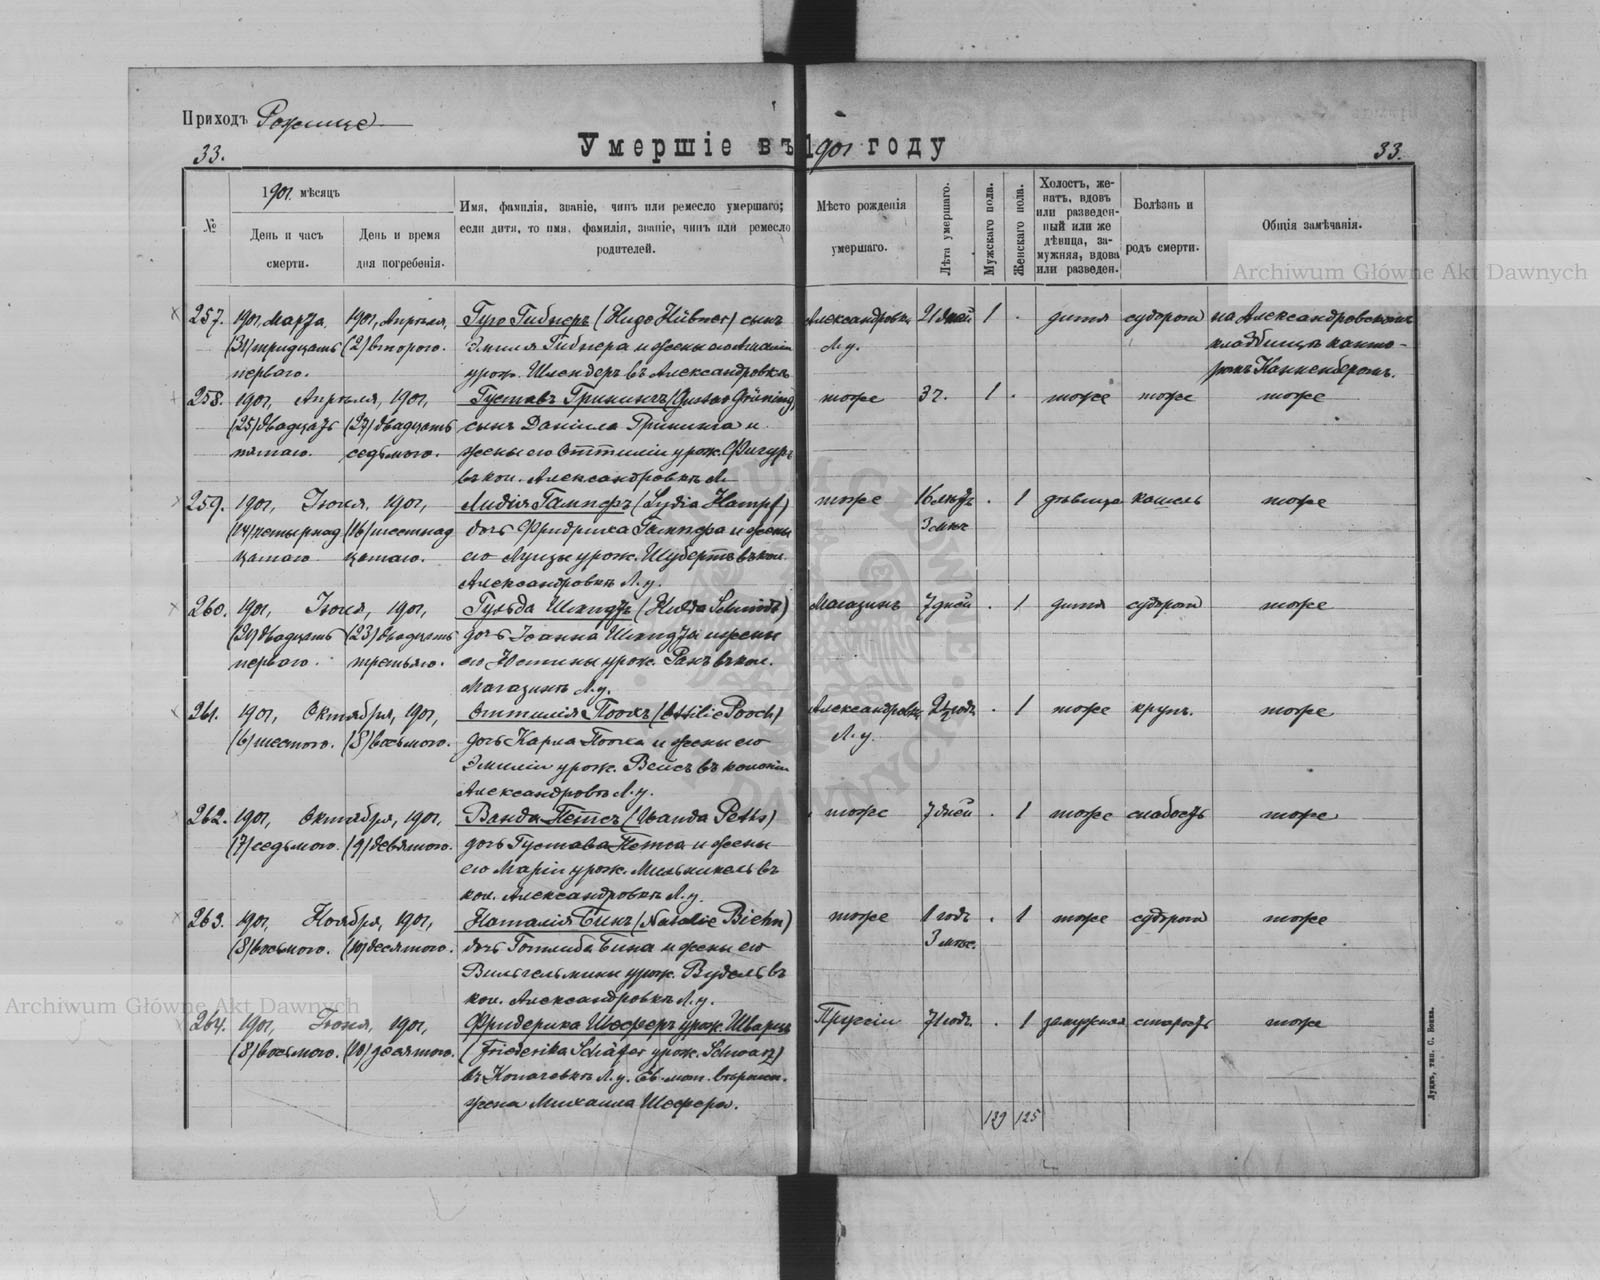 Приходъ Рожище
33.
Умершіе въ 1901 году
33.
№
1901 мѣсяцъ
День и часъ
смерти.
День и время
дня погребенія.
Имя, фамилія, званіе, чинъ или ремесло умершаго;
если дитя, то имя, фамилія, званіе, чинъ или ремесло
родителей.
Мѣсто рожденія
умершаго.
Лѣта умершаго.
Мужскаго пола.
Женскаго пола.
Холостъ, же-
натъ, вдовъ
или разведен-
ный или же
дѣвица, за-
мужняя, вдова
или разведен.
Болѣзнь и
родъ смерти.
Общія замѣчанія.
Archiwum Główne Akt Dawnych
257. 1901, Марта, 1901, Апрѣля, Гуго Гибнеръ (Hugo Hübner) сынъ Александровка 21 дней 1 . дитя судороги на Александровскомъ
(31) тридцать (2) второго. Эмиля Гибнера и жены его Амаліи Л. у. кладбищѣ канто-
перваго. урож. Шлендеръ въ Александровкѣ ромъ Канненбергомъ.
258. 1901, Апрѣля, 1901, Густавъ Гринингъ (Gustav Grüning) тоже 3 ч. 1 . тоже тоже тоже
(25) двадцать (27) двадцать сынъ Даніила Грининга и
пятаго. седьмого. жены его Оттиліи урож. Фигуръ
въ кол. Александровкѣ Л.
259. 1901, Іюня, 1901, Лидія Гампфъ (Lydia Hampf) тоже 16 лѣтъ . 1 дѣвица кашель тоже
(14) четырнад (16) шестнад дочь Фридриха Гампфа и жены 3 мѣс
цатаго цатаго. его Луизы урож. Шубертъ въ кол.
Александровкѣ Л. у.
260. 1901, Іюня, 1901, Гульда Шмидтъ (Hulda Schmidt) Магазинъ 7 дней . 1 дитя судороги тоже
(21) двадцать (23) двадцать дочь Іоанна Шмидта и жены
перваго. третьяго. его Юстины урож. Ранъ въ кол.
Магазинѣ Л. у.
261. 1901, Октября, 1901, Оттилія Поохъ (Ottilie Pooch) Александровка 2½ года . 1 тоже крупъ. тоже
(6) шестого. (8) восьмого. дочь Карла Пооха и жены его Л. у.
Эмиліи урож. Вейсъ въ колоніи
Александровкѣ Л. у.
262. 1901, Октября, 1901, Ванда Петсъ (Wanda Petts) тоже 7 дней . 1 тоже слабость тоже
(7) седьмого. (9) девятого. дочь Густава Петса и жены
его Маріи урож. въ
кол. Александровкѣ Л. у.
263. 1901, Ноября, 1901, Наталія Бинъ (Natalie Biehn) тоже 1 годъ . 1 тоже судороги тоже
(8) восьмого. (10) десятого. дочь Готлиба Бина и жены его 3 мѣс.
Вильгельмины урож. Вудель въ
кол. Александровкѣ Л. у.
Archiwum Główne Akt Dawnych
264. 1901, Іюня, 1901, Фридерика Шеферъ урож. Шварцъ Пруссіи 71 годъ. . 1 замужняя старость тоже
(8) восьмого. (10) десятого. (Friederika Schäfer урож. Schwarz)
въ Копачевкѣ Л. у.
жена Михаила Шефера.
129 125
Луцкъ, тип. С. Бокка.